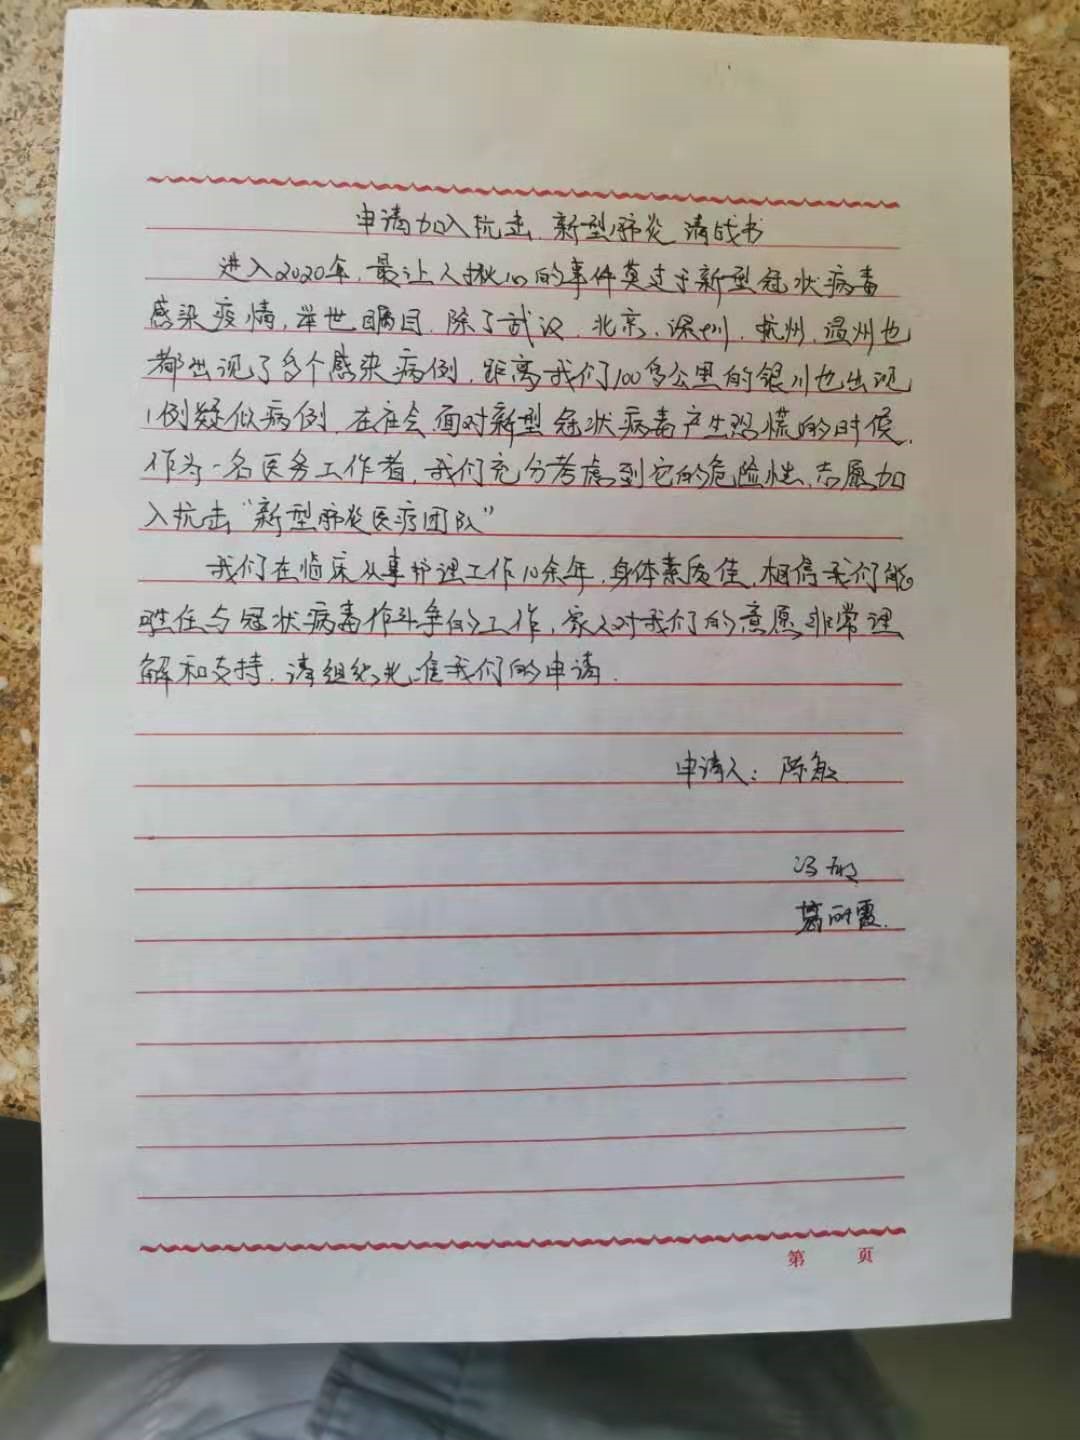 申请加入抗击新型肺炎请战书
进入2020年，最让人揪心的事件莫过于新型冠状病毒
感染疫情，举世瞩目．除了武汉．北京．深圳．杭州．温州也
都出现了多个感染病例．距离我们100多公里的银川也出现
1例疑似病例．在社会面对新型冠状病毒产生恐慌的时候．
作为一名医务工作者，我们充分考虑到它的危险性．志愿加
入抗击“新型肺炎医疗团队”
我们在临床从事护理工作10余年，身体素质佳．相信我们能
胜任与冠状病毒作斗争的工作，家人对我们的意愿非常理
解和支持．请组织批准我们的申请．
申请人：陈敏
冯
葛丽霞．
第 页